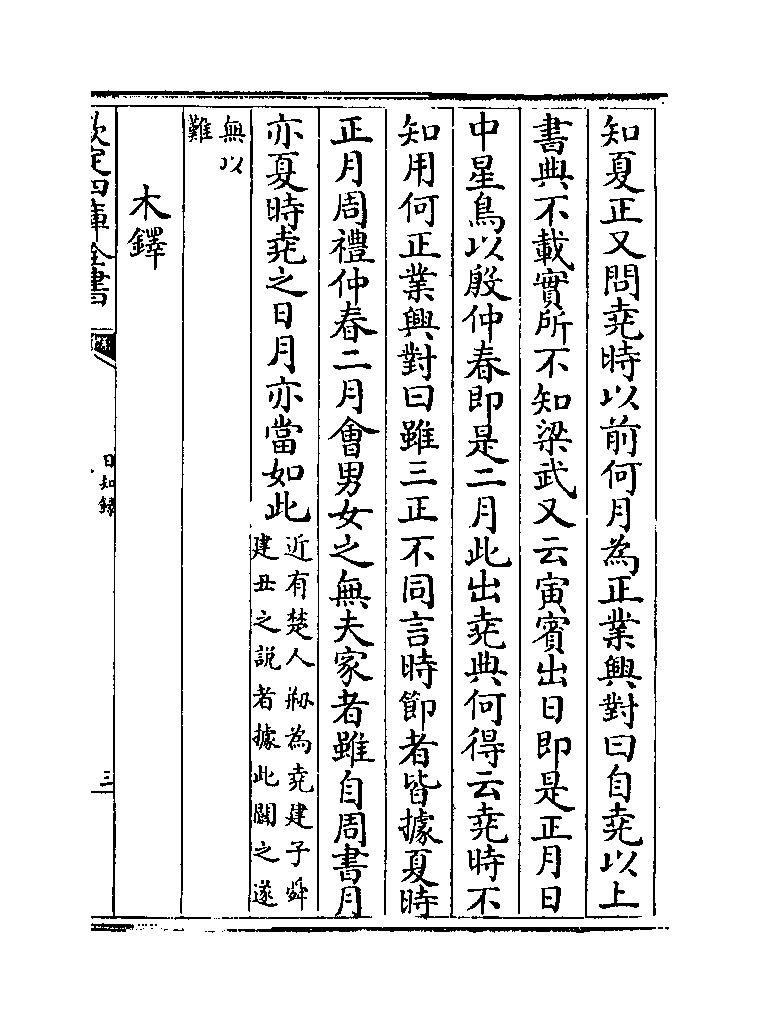 知夏正又問堯時以前何月為正業興對曰自堯以上
書典不載實所不知梁武又云寅賓出日即是正月日
中星鳥以殷仲春即是二月此出堯典何得云堯時不
知用何正業興對曰雖三正不同言時節者皆據夏時
正月周禮仲春二月會男女之無夫家者雖自周書月
亦夏時堯之日月亦當如此
近有楚人刱為堯建子舜
建丑之說者據此闢之遂
無以
難
木鐸
欽定四庫全書
日知録
三